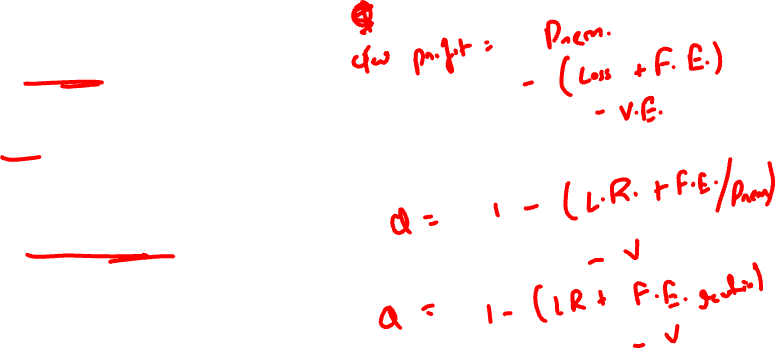 u/w profit = Prem.
- (Loss + F.E.)
- V.E.
Q = 1 - (L.R. + F.E./Prem)
- V
Q = 1 - (LR + F.E. ratio)
- V